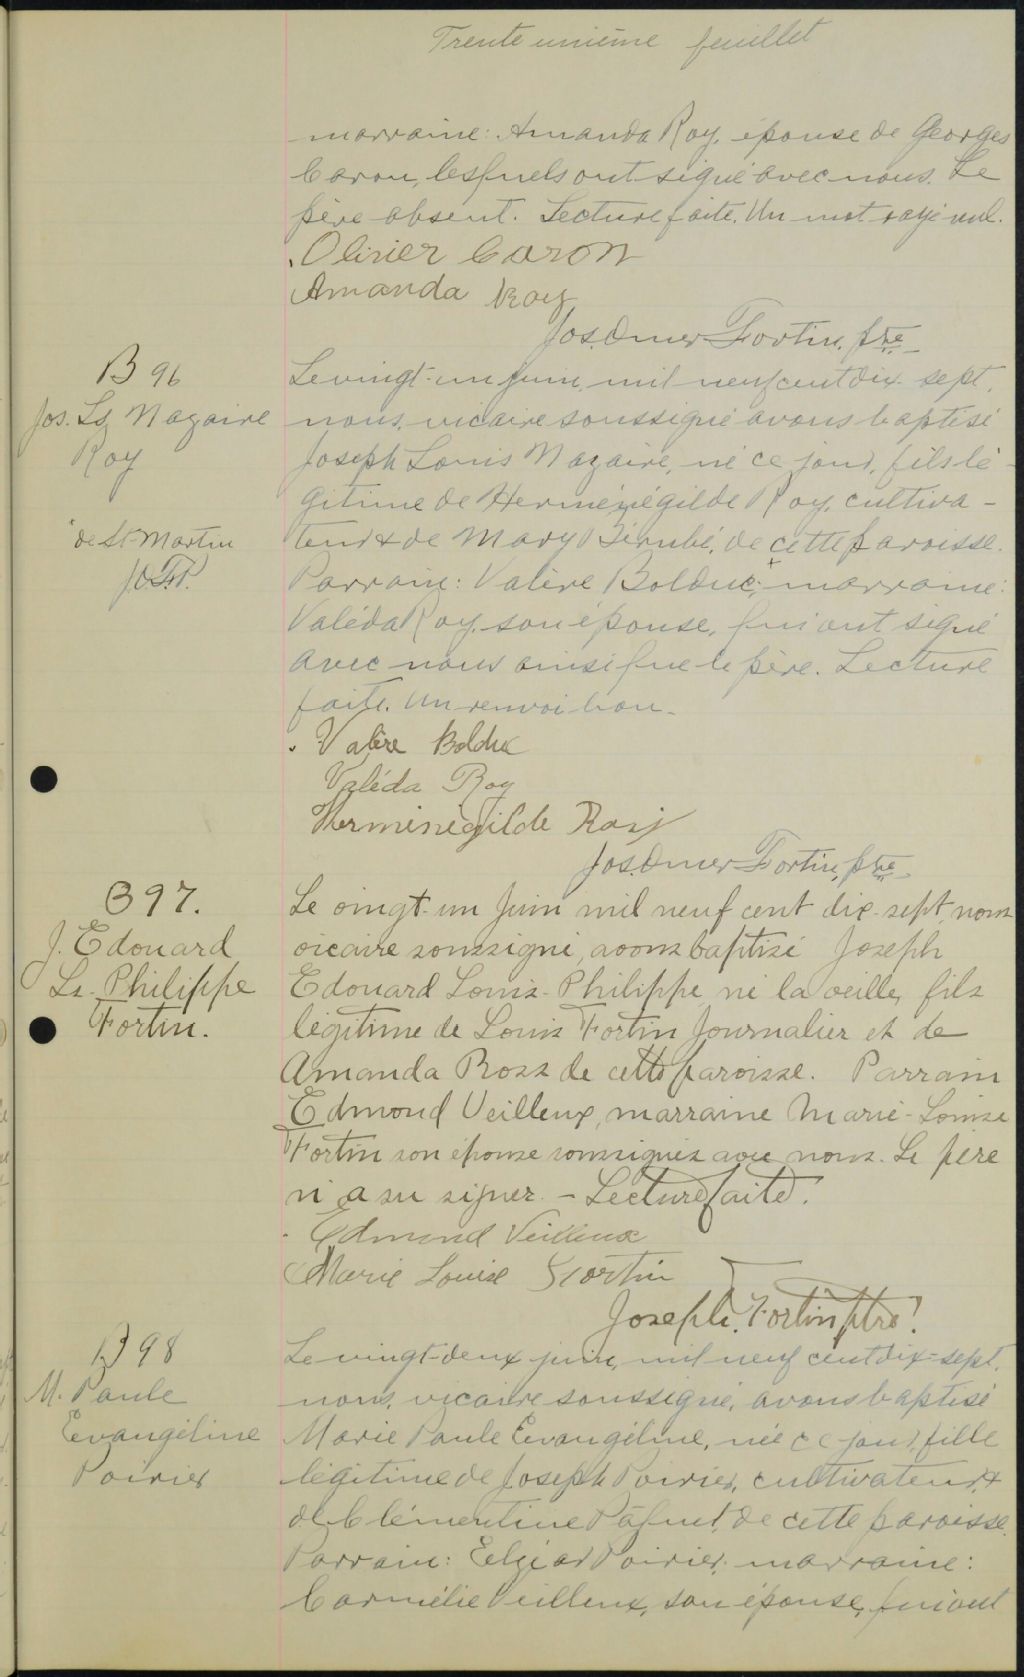 Trente unième feuillet
marraine: Amanda Roy, épouse de Georges
Caron, lesquels ont signé avec nous. Le
père absent. Lecture faite. Un mot rayé nul.
Olivier Caron
Amanda Roy
Jos. Omer Fortin, ptre
B 96
Jos. Ls Nazaire
Roy
de St-Martin
J.O.F.P.
Le vingt-un juin, mil neuf cent dix-sept,
nous, vicaire soussigné avons baptisé
Joseph Louis Nazaire, né ce jour, fils lé-
gitime de Herménégilde Roy, cultiva-
teur & de Mary Bérubé, de cette paroisse.
Parrain: Valère Bolduc; + marraine:
Valéda Roy, son épouse, qui ont signé
avec nous ainsi que le père. Lecture
faite. Un renvoi bon.
Valère Bolduc
Valéda Roy
Herménégilde Roy
Jos. Omer Fortin, ptre
B 97.
J. Edouard
Ls-Philippe
Fortin.
Le vingt-un Juin mil neuf cent dix-sept, nous
vicaire soussigné, avons baptisé Joseph
Edouard Louis-Philippe, né la veille, fils
légitime de Louis Fortin Journalier et de
Amanda Ross de cette paroisse. Parrain
Edmond Veilleux, marraine Marie-Louise
Fortin son épouse soussignés avec nous. Le père
n'a su signer. - Lecture faite.
Edmond Veilleux
Marie Louise Fortin
Joseph. Fortin ptre.
B 98
M. Paule
Evangéline
Poirier
Le vingt-deux juin, mil neuf cent dix-sept,
nous, vicaire soussigné, avons baptisé
Marie Paule Evangéline, née ce jour, fille
légitime de Joseph Poirier, cultivateur, &
de Clémentine Pâquet, de cette paroisse.
Parrain: Elzéar Poirier; marraine:
Carmélie Veilleux, son épouse, qui ont